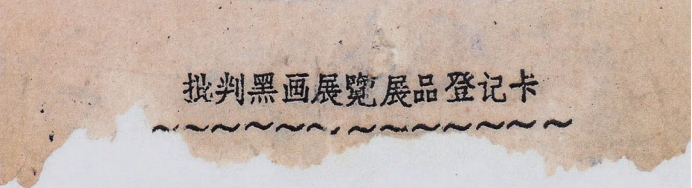 批判黑画展覽展品登记卡